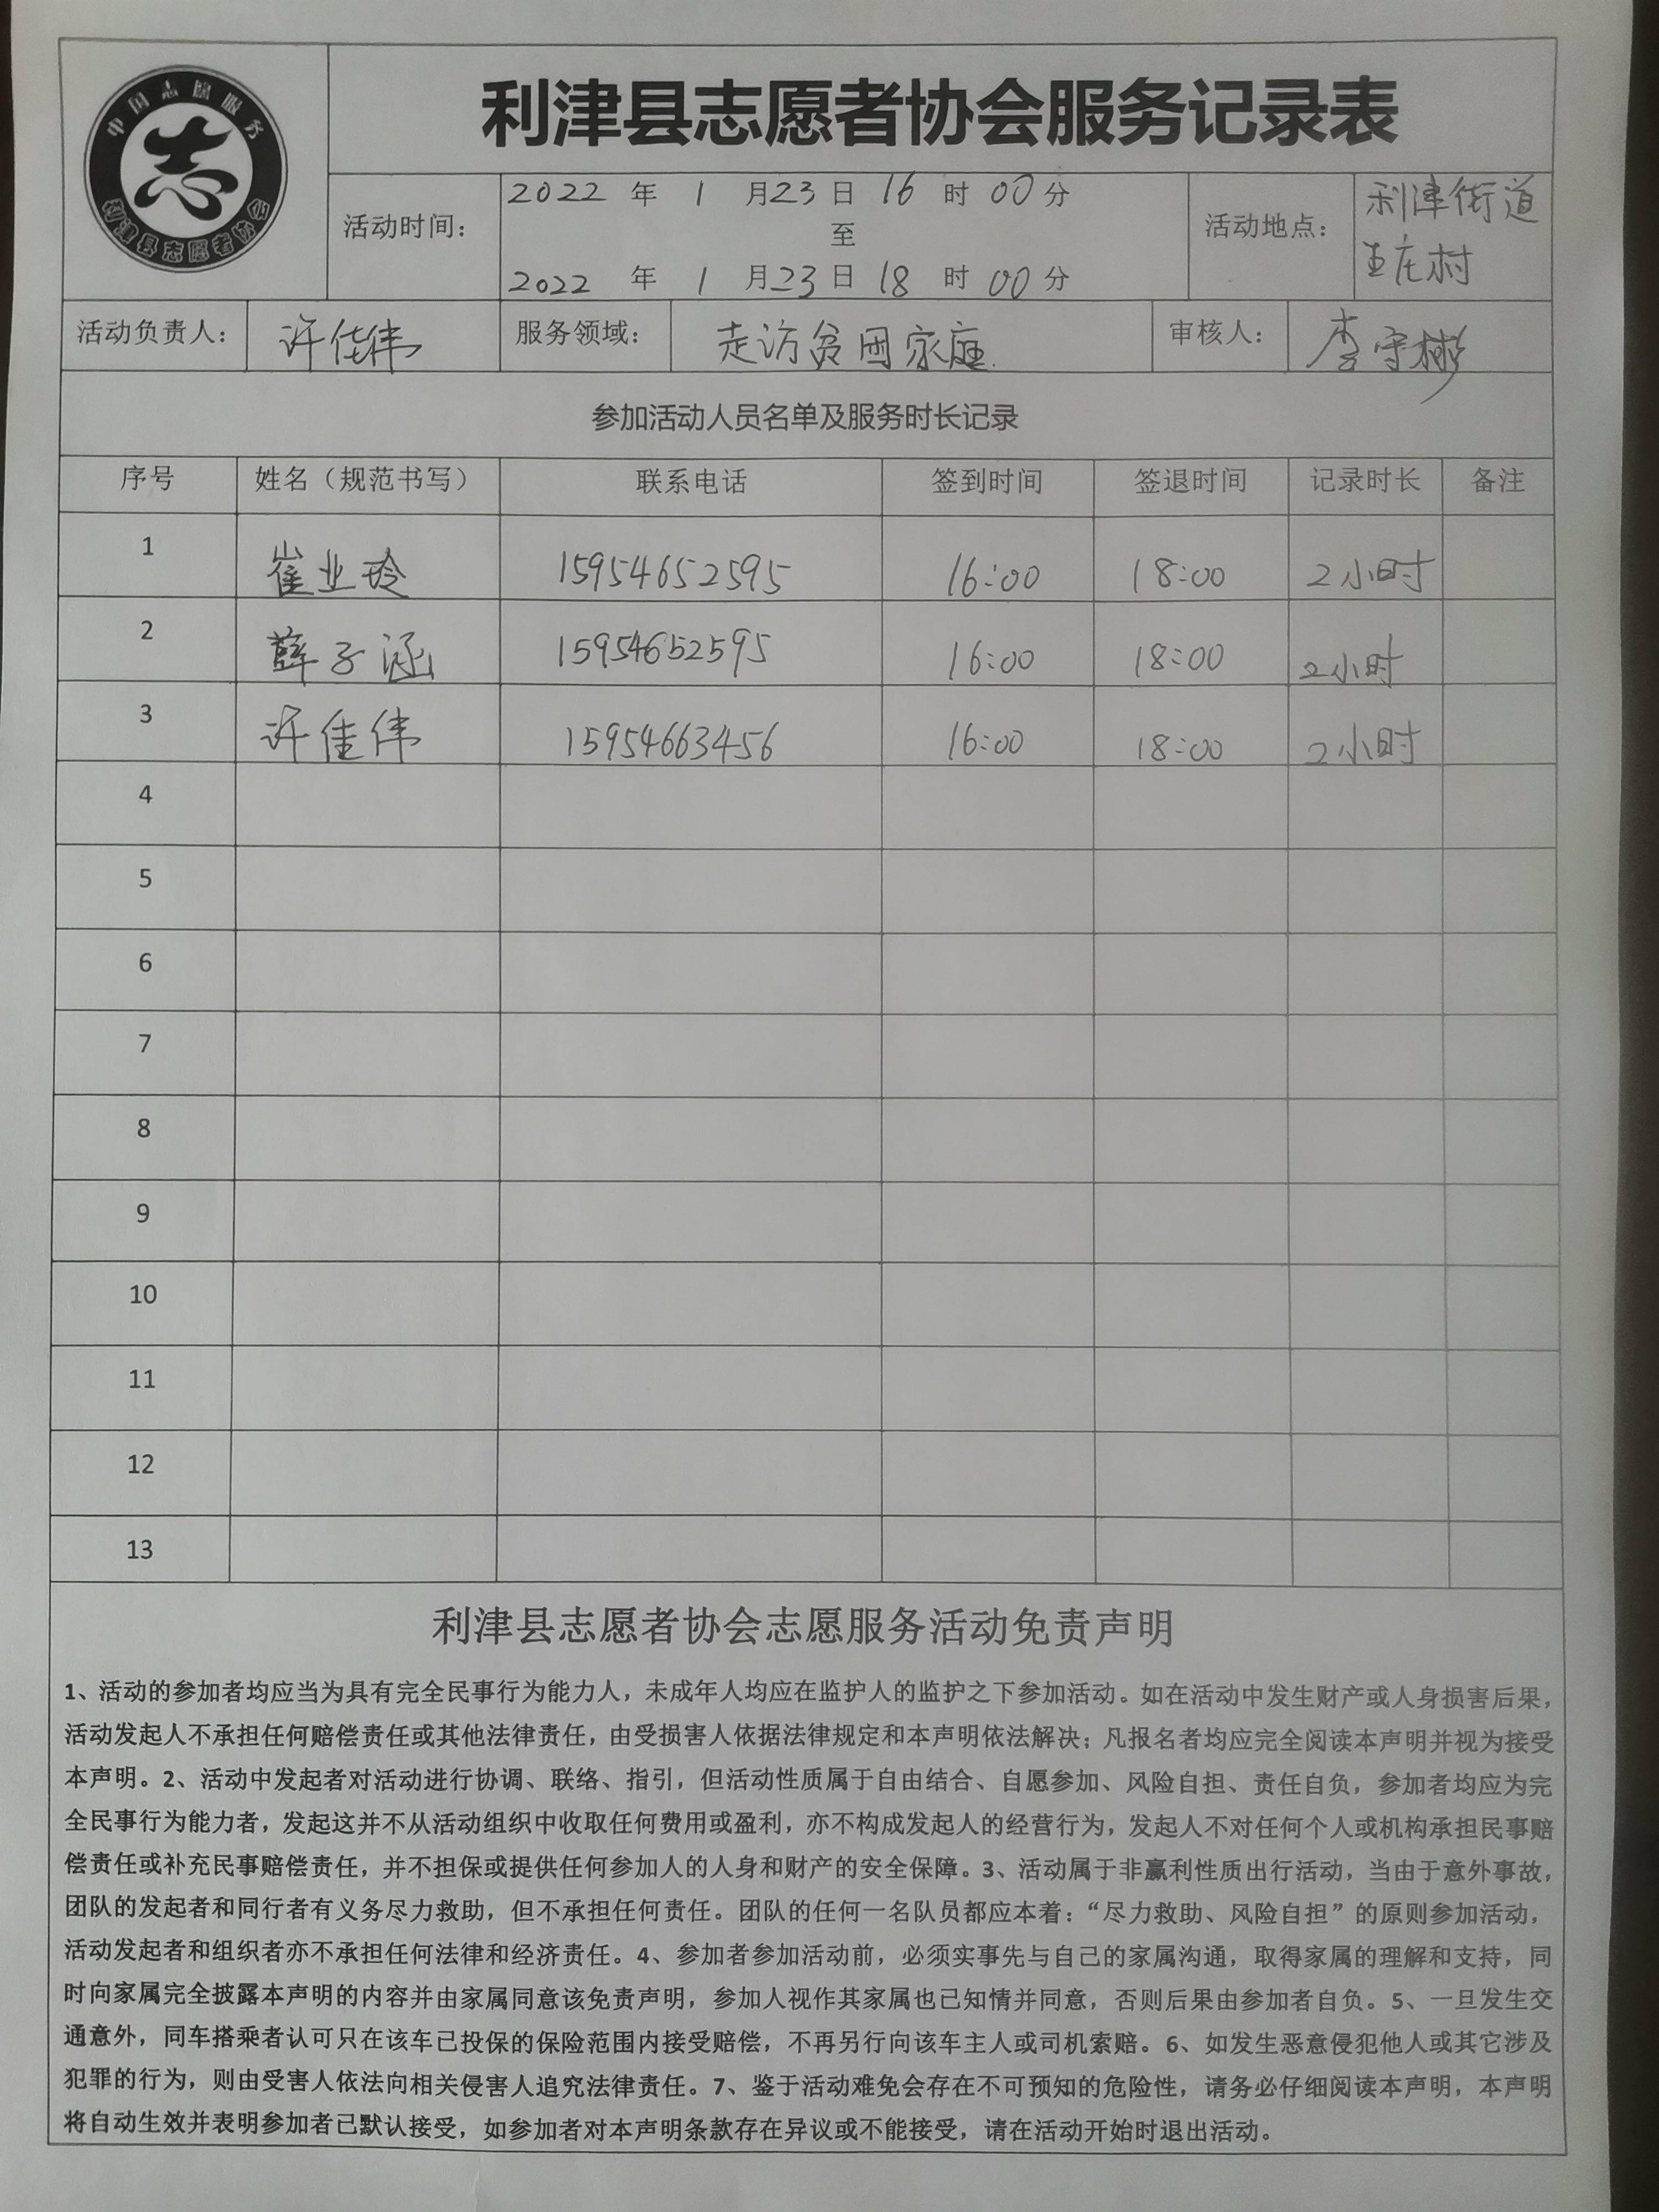 中国志愿服务
志
利津县志愿者协会
利津县志愿者协会服务记录表
活动时间：
2022 年 1 月23日 16 时 00分
至
2022 年 1 月23日 18 时 00分
活动地点：
利津街道
王庄村
活动负责人： 许佳伟 服务领域： 走访贫困家庭. 审核人： 李守彬
参加活动人员名单及服务时长记录
序号 姓名（规范书写） 联系电话 签到时间 签退时间 记录时长 备注
1 崔业玲 15954652595 16:00 18:00 2小时
2 薛子涵 15954652595 16:00 18:00 2小时
3 许佳伟 15954663456 16:00 18:00 2小时
4
5
6
7
8
9
10
11
12
13
利津县志愿者协会志愿服务活动免责声明
1、活动的参加者均应当为具有完全民事行为能力人，未成年人均应在监护人的监护之下参加活动。如在活动中发生财产或人身损害后果，
活动发起人不承担任何赔偿责任或其他法律责任，由受损害人依据法律规定和本声明依法解决；凡报名者均应完全阅读本声明并视为接受
本声明。2、活动中发起者对活动进行协调、联络、指引，但活动性质属于自由结合、自愿参加、风险自担、责任自负，参加者均应为完
全民事行为能力者，发起这并不从活动组织中收取任何费用或盈利，亦不构成发起人的经营行为，发起人不对任何个人或机构承担民事赔
偿责任或补充民事赔偿责任，并不担保或提供任何参加人的人身和财产的安全保障。3、活动属于非赢利性质出行活动，当由于意外事故，
团队的发起者和同行者有义务尽力救助，但不承担任何责任。团队的任何一名队员都应本着：“尽力救助、风险自担”的原则参加活动，
活动发起者和组织者亦不承担任何法律和经济责任。4、参加者参加活动前，必须实事先与自己的家属沟通，取得家属的理解和支持，同
时向家属完全披露本声明的内容并由家属同意该免责声明，参加人视作其家属也已知情并同意，否则后果由参加者自负。5、一旦发生交
通意外，同车搭乘者认可只在该车已投保的保险范围内接受赔偿，不再另行向该车主人或司机索赔。6、如发生恶意侵犯他人或其它涉及
犯罪的行为，则由受害人依法向相关侵害人追究法律责任。7、鉴于活动难免会存在不可预知的危险性，请务必仔细阅读本声明，本声明
将自动生效并表明参加者已默认接受，如参加者对本声明条款存在异议或不能接受，请在活动开始时退出活动。